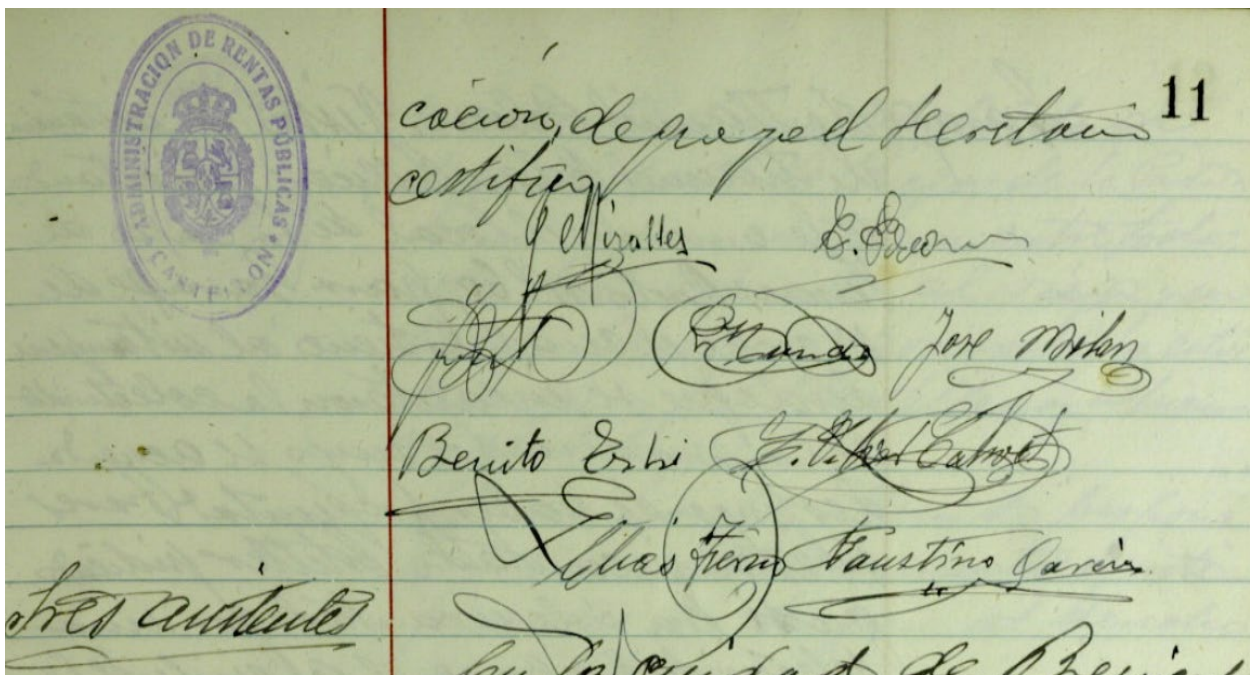 ADMINISTRACION DE RENTAS PÚBLICAS · CASTELLON
11
cación, de que yo el Secretario
certifico
J Miralles
Jose Milan
Benito Esbi
Elias Ferrer Faustino Garcia
Sres asistentes
En la ciudad de Beni